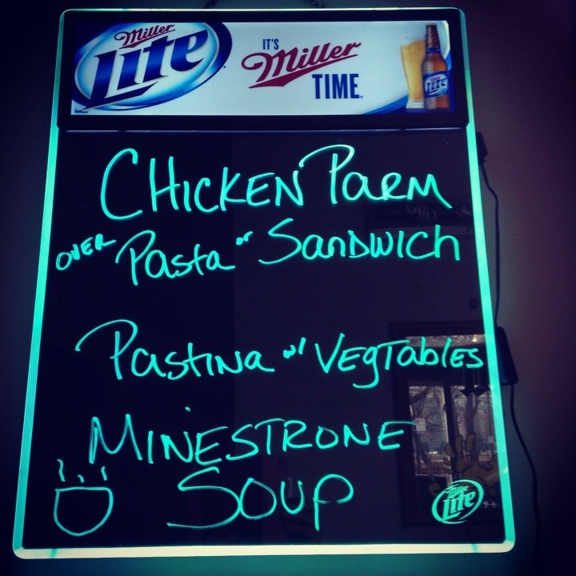 Miller Lite
IT'S Miller TIME
CHICKEN PARM
OVER Pasta or SANDWICH
Pastina w/ VegTables
MINESTRONE
SOUP
Lite